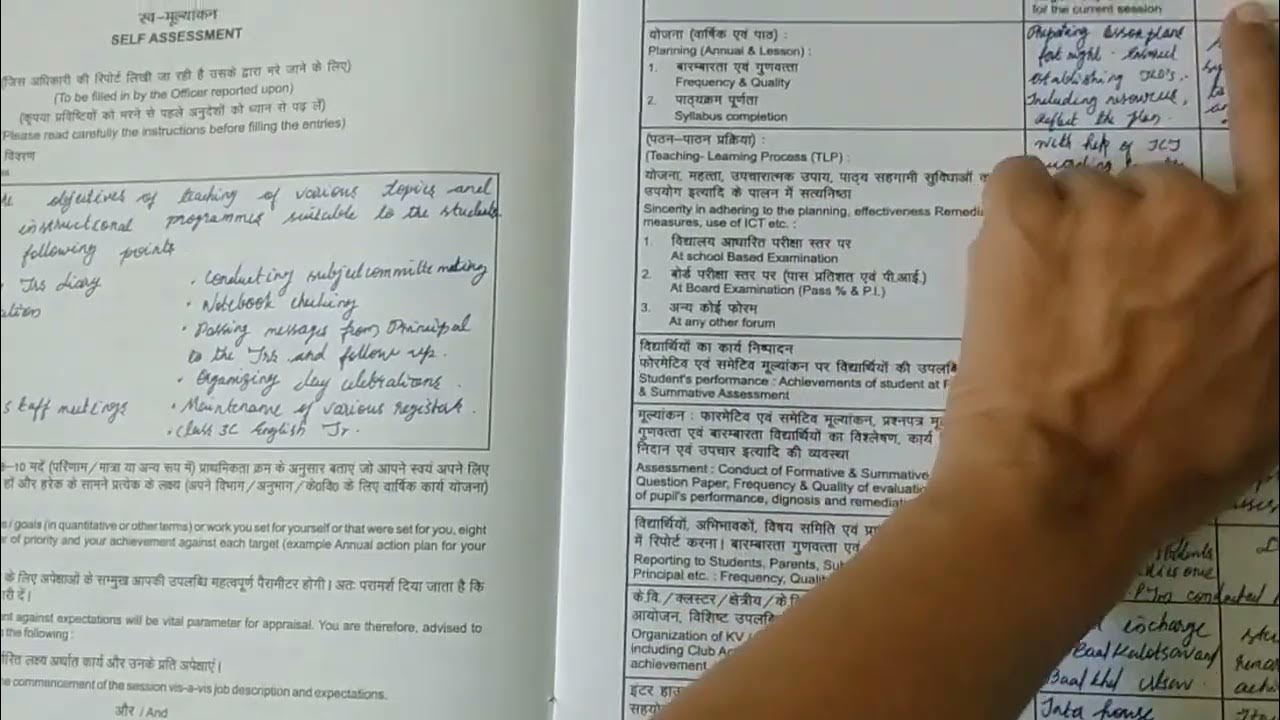 स्व-मूल्यांकन
SELF ASSESSMENT
(जिस अधिकारी की रिपोर्ट लिखी जा रही है उसके द्वारा भरे जाने के लिए)
(To be filled in by the Officer reported upon)
(कृपया प्रविष्टियों को भरने से पहले अनुदेशों को ध्यान से पढ़ लें)
Please read carefully the instructions before filling the entries)
विवरण
objectives of teaching of various topics and
instructional programmes suitable to the students
following points
Trs diary
• Conducting subject committe meeting
• Notebook checking
• Passing messages from Principal
to the Trs and follow up.
• Organizing day celebrations.
staff meetings
• Maintenance of various register.
• Class 3C English Tr.
8-10 मदें (परिणाम/मात्रा या अन्य रूप में) प्राथमिकता क्रम के अनुसार बताए जो आपने स्वयं अपने लिए
हों और हरेक के सामने प्रत्येक के लक्ष्य (अपने विभाग/अनुभाग/के०वि० के लिए वार्षिक कार्य योजना)
/ goals (in quantitative or other terms) or work you set for yourself or that were set for you, eight
of priority and your achievement against each target (example Annual action plan for your
के लिए अपेक्षाओं के सम्मुख आपकी उपलब्धि महत्वपूर्ण पैरामीटर होगी। अतः परामर्श दिया जाता है कि
against expectations will be vital parameter for appraisal. You are therefore, advised to
the following :
लक्ष्य अर्थात कार्य और उनके प्रति अपेक्षाएं।
commencement of the session vis-a-vis job description and expectations.
और / And
for the current session
योजना (वार्षिक एवं पाठ) :
Planning (Annual & Lesson) :
1. बारम्बारता एवं गुणवत्ता
Frequency & Quality
2. पाठ्यक्रम पूर्णता
Syllabus completion
Preparing lesson plans
establishing TLO's.
Including resources,
reflect the plan.
(पठन-पाठन प्रक्रिया) :
(Teaching- Learning Process (TLP) :
योजना, महत्ता, उपचारात्मक उपाय, पाठ्य सहगामी सुविधाओं
उपयोग इत्यादि के पालन में सत्यनिष्ठा
Sincerity in adhering to the planning, effectiveness Remedia
measures, use of ICT etc. :
1. विद्यालय आधारित परीक्षा स्तर पर
At school Based Examination
2. बोर्ड परीक्षा स्तर पर (पास प्रतिशत एवं पी.आई.)
At Board Examination (Pass % & P.I.)
3. अन्य कोई फोरम
At any other forum
With help of ICT
विद्यार्थियों का कार्य निष्पादन
फोरमेटिव एवं समेटिव मूल्यांकन पर विद्यार्थियों की उपलब्धि
Student's performance : Achievements of student at F
& Summative Assessment
मूल्यांकन : फारमेटिव एवं समेटिव मूल्यांकन, प्रश्नपत्र
गुणवत्ता एवं बारम्बारता विद्यार्थियों का विश्लेषण, कार्य
निदान एवं उपचार इत्यादि की व्यवस्था
Assessment : Conduct of Formative & Summative
Question Paper, Frequency & Quality of evaluatio
of pupil's performance, dignosis and remediat
विद्यार्थियों, अभिभावकों, विषय समिति एवं
में रिपोर्ट करना। बारम्बारता गुणवत्ता एवं
Reporting to Students, Parents, Su
Principal etc. : Frequency, Quali
students
conducted
के.वि./क्लस्टर/क्षेत्रीय/के.
आयोजन, विशिष्ट
Organization of KV
including Club Ac
achievement
incharge
Baal Kalotsav and
Baal khel utsav
इंटर
सहयो
Tata house